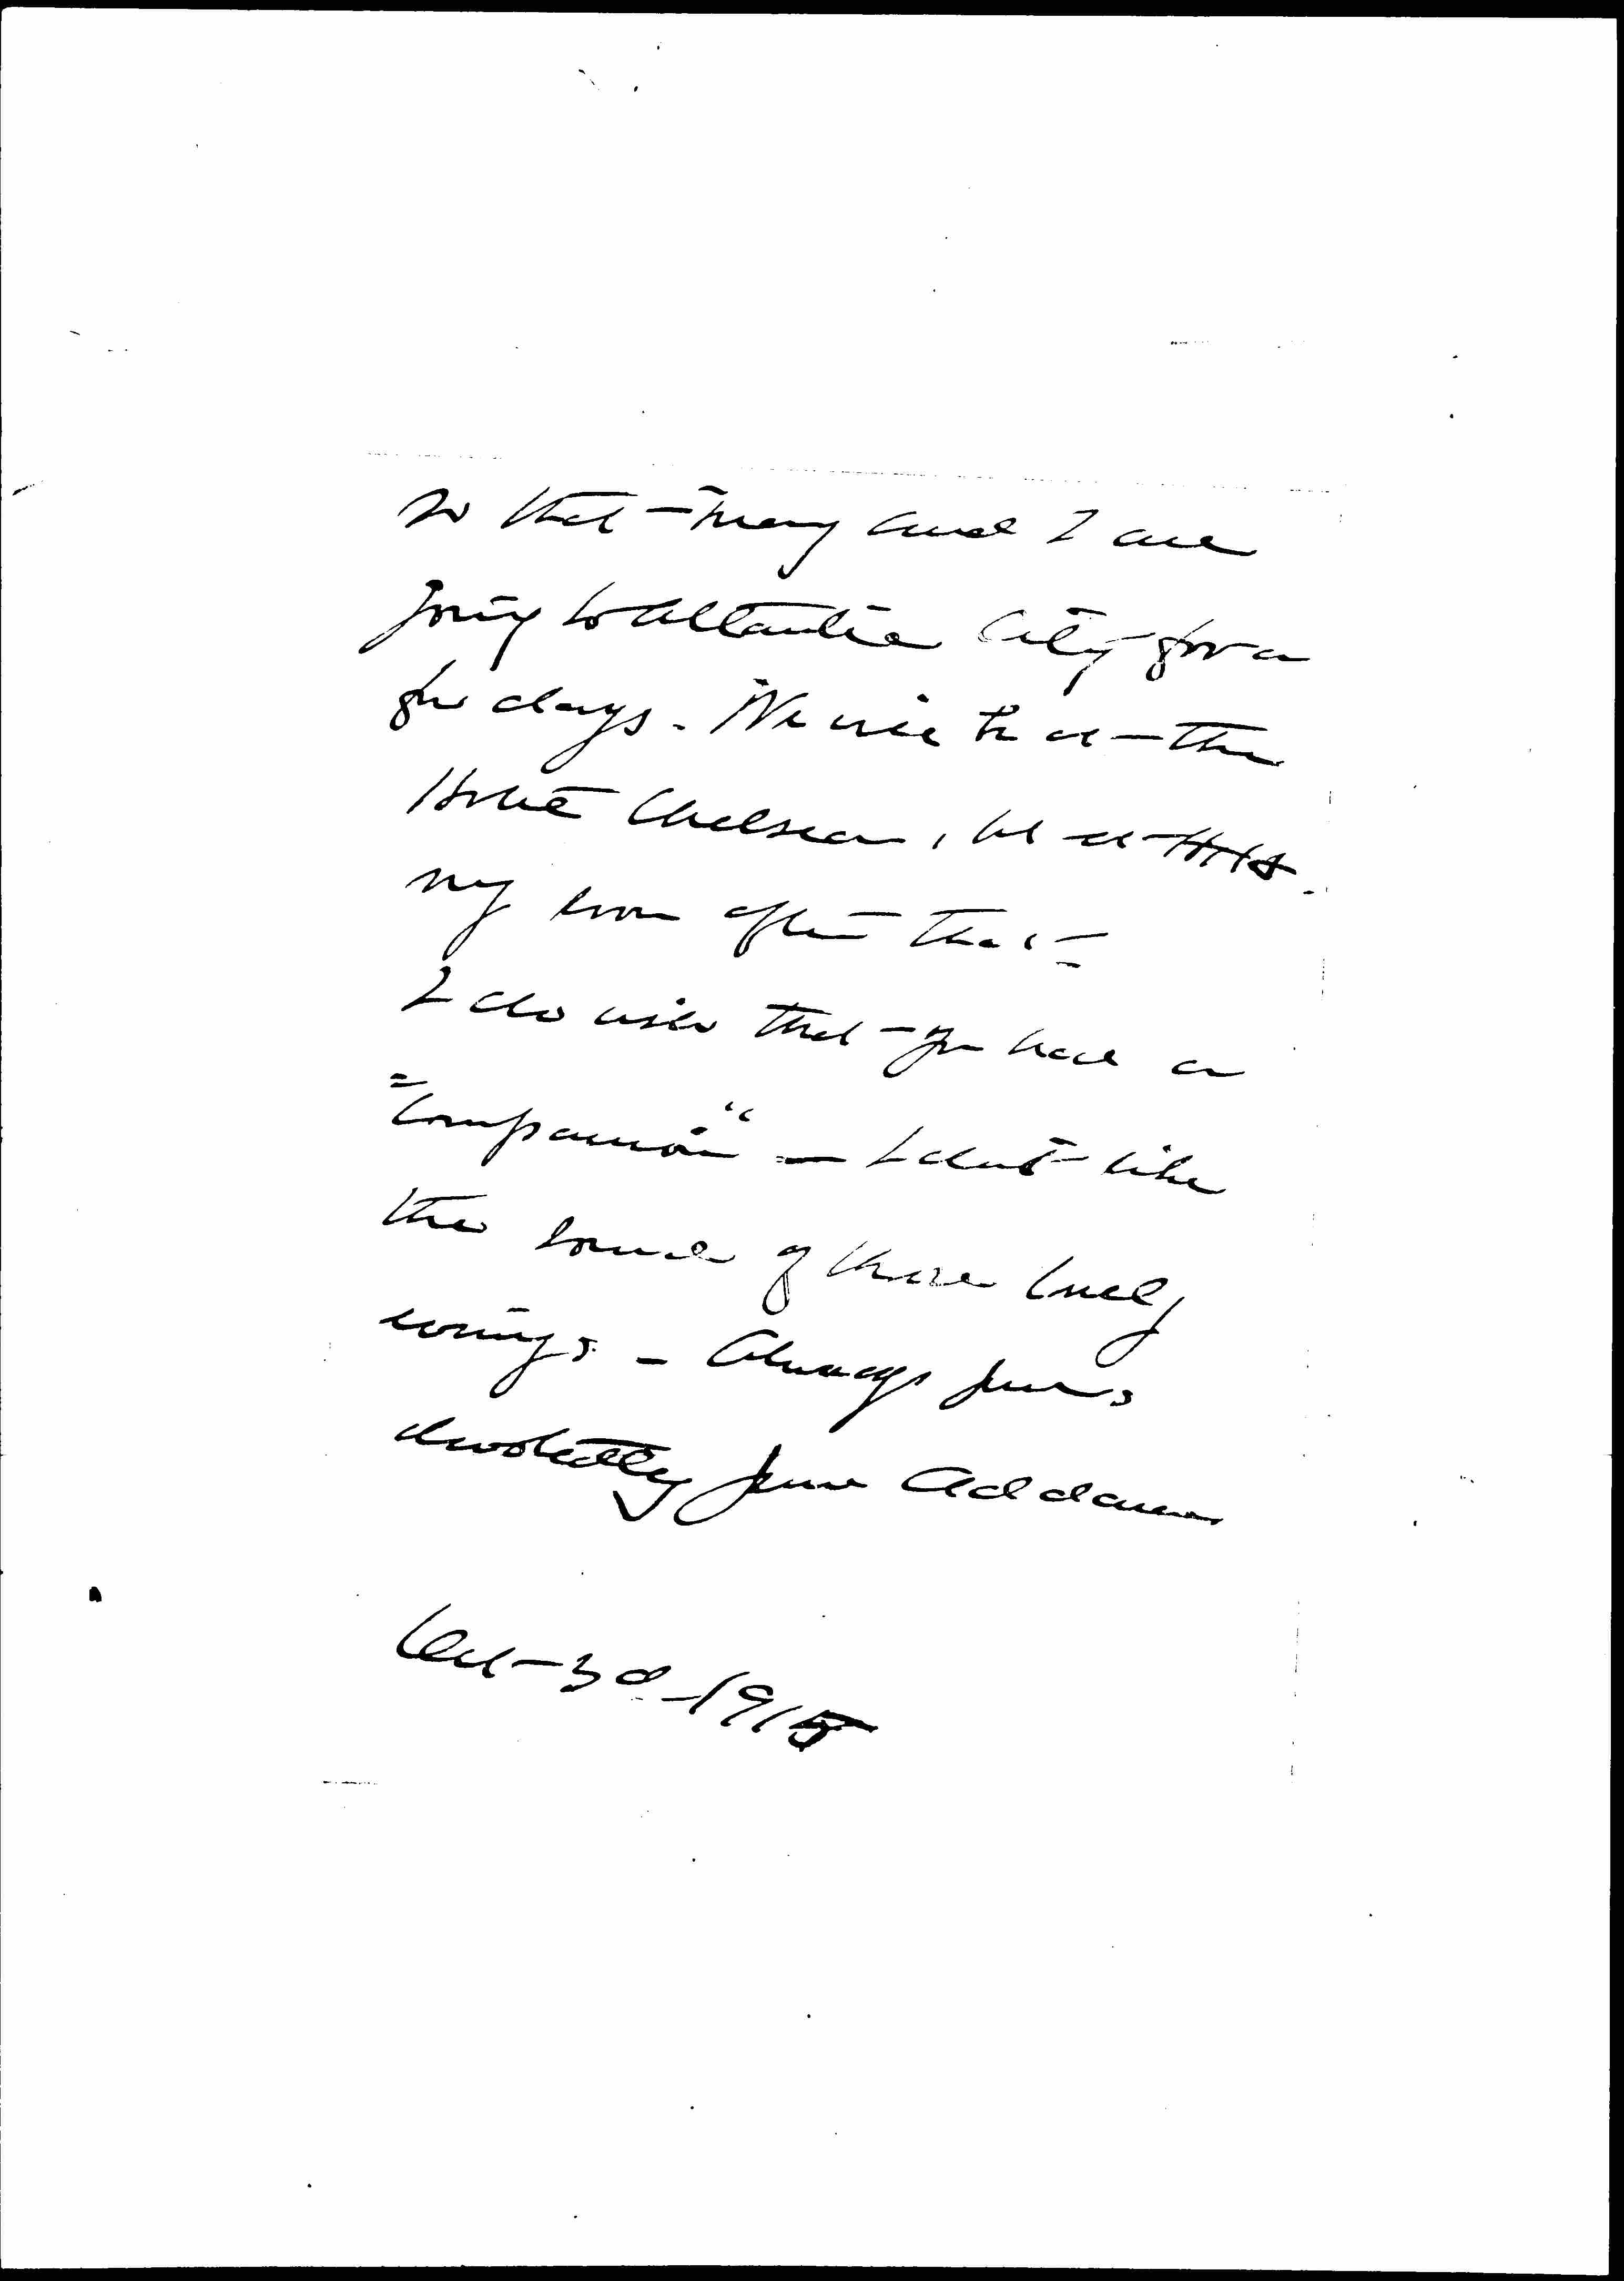 so that Mary and I are
going to Atlantic City for a
few days. We will be at the
Hotel Chelsea, but at H.H.
very soon after that
I do wish that you had a
"companion" — I don't like
the sound of those lonely
evenings — Always yours
devotedly Jane Addams
Oct 30 1915